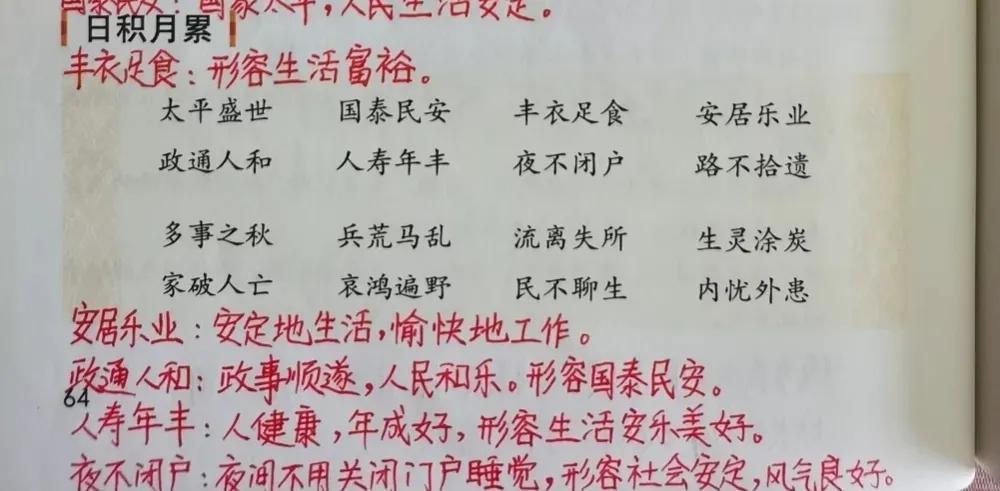 国泰民安：国家太平，人民生活安定。
日积月累
丰衣足食：形容生活富裕。
太平盛世 国泰民安 丰衣足食 安居乐业
政通人和 人寿年丰 夜不闭户 路不拾遗
多事之秋 兵荒马乱 流离失所 生灵涂炭
家破人亡 哀鸿遍野 民不聊生 内忧外患
安居乐业：安定地生活，愉快地工作。
政通人和：政事顺遂，人民和乐。形容国泰民安。
64
人寿年丰：人健康，年成好，形容生活安乐美好。
夜不闭户：夜间不用关闭门户睡觉，形容社会安定，风气良好。